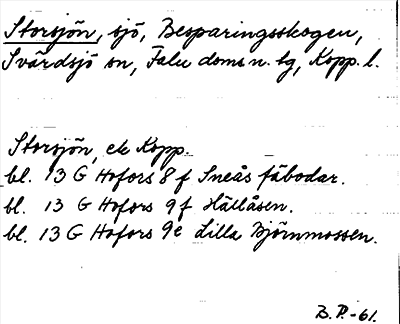 Storsjön, sjö, Besparingsskogen,
Svärdsjö sn, Falu doms n. tg, Kopp. l.
Storsjön, ek Kopp.
bl. 13 G Hofors 8 f Sneås fäbodar.
bl. 13 G Hofors 9 f Hällåsen.
bl. 13 G Hofors 9 e Lilla Björnmossen.
B.P.-61.